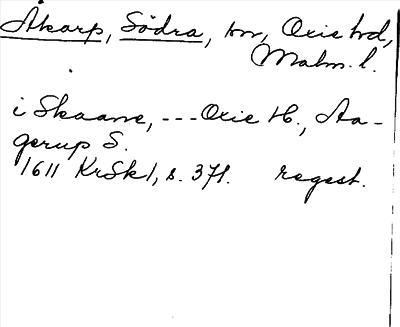 Åkarp, Södra, tn, Oxie hd,
Malm. l.
i Skaane, --- Oxie H., Aa-
gerup S.
1611 KrSk1, s. 371. regest.